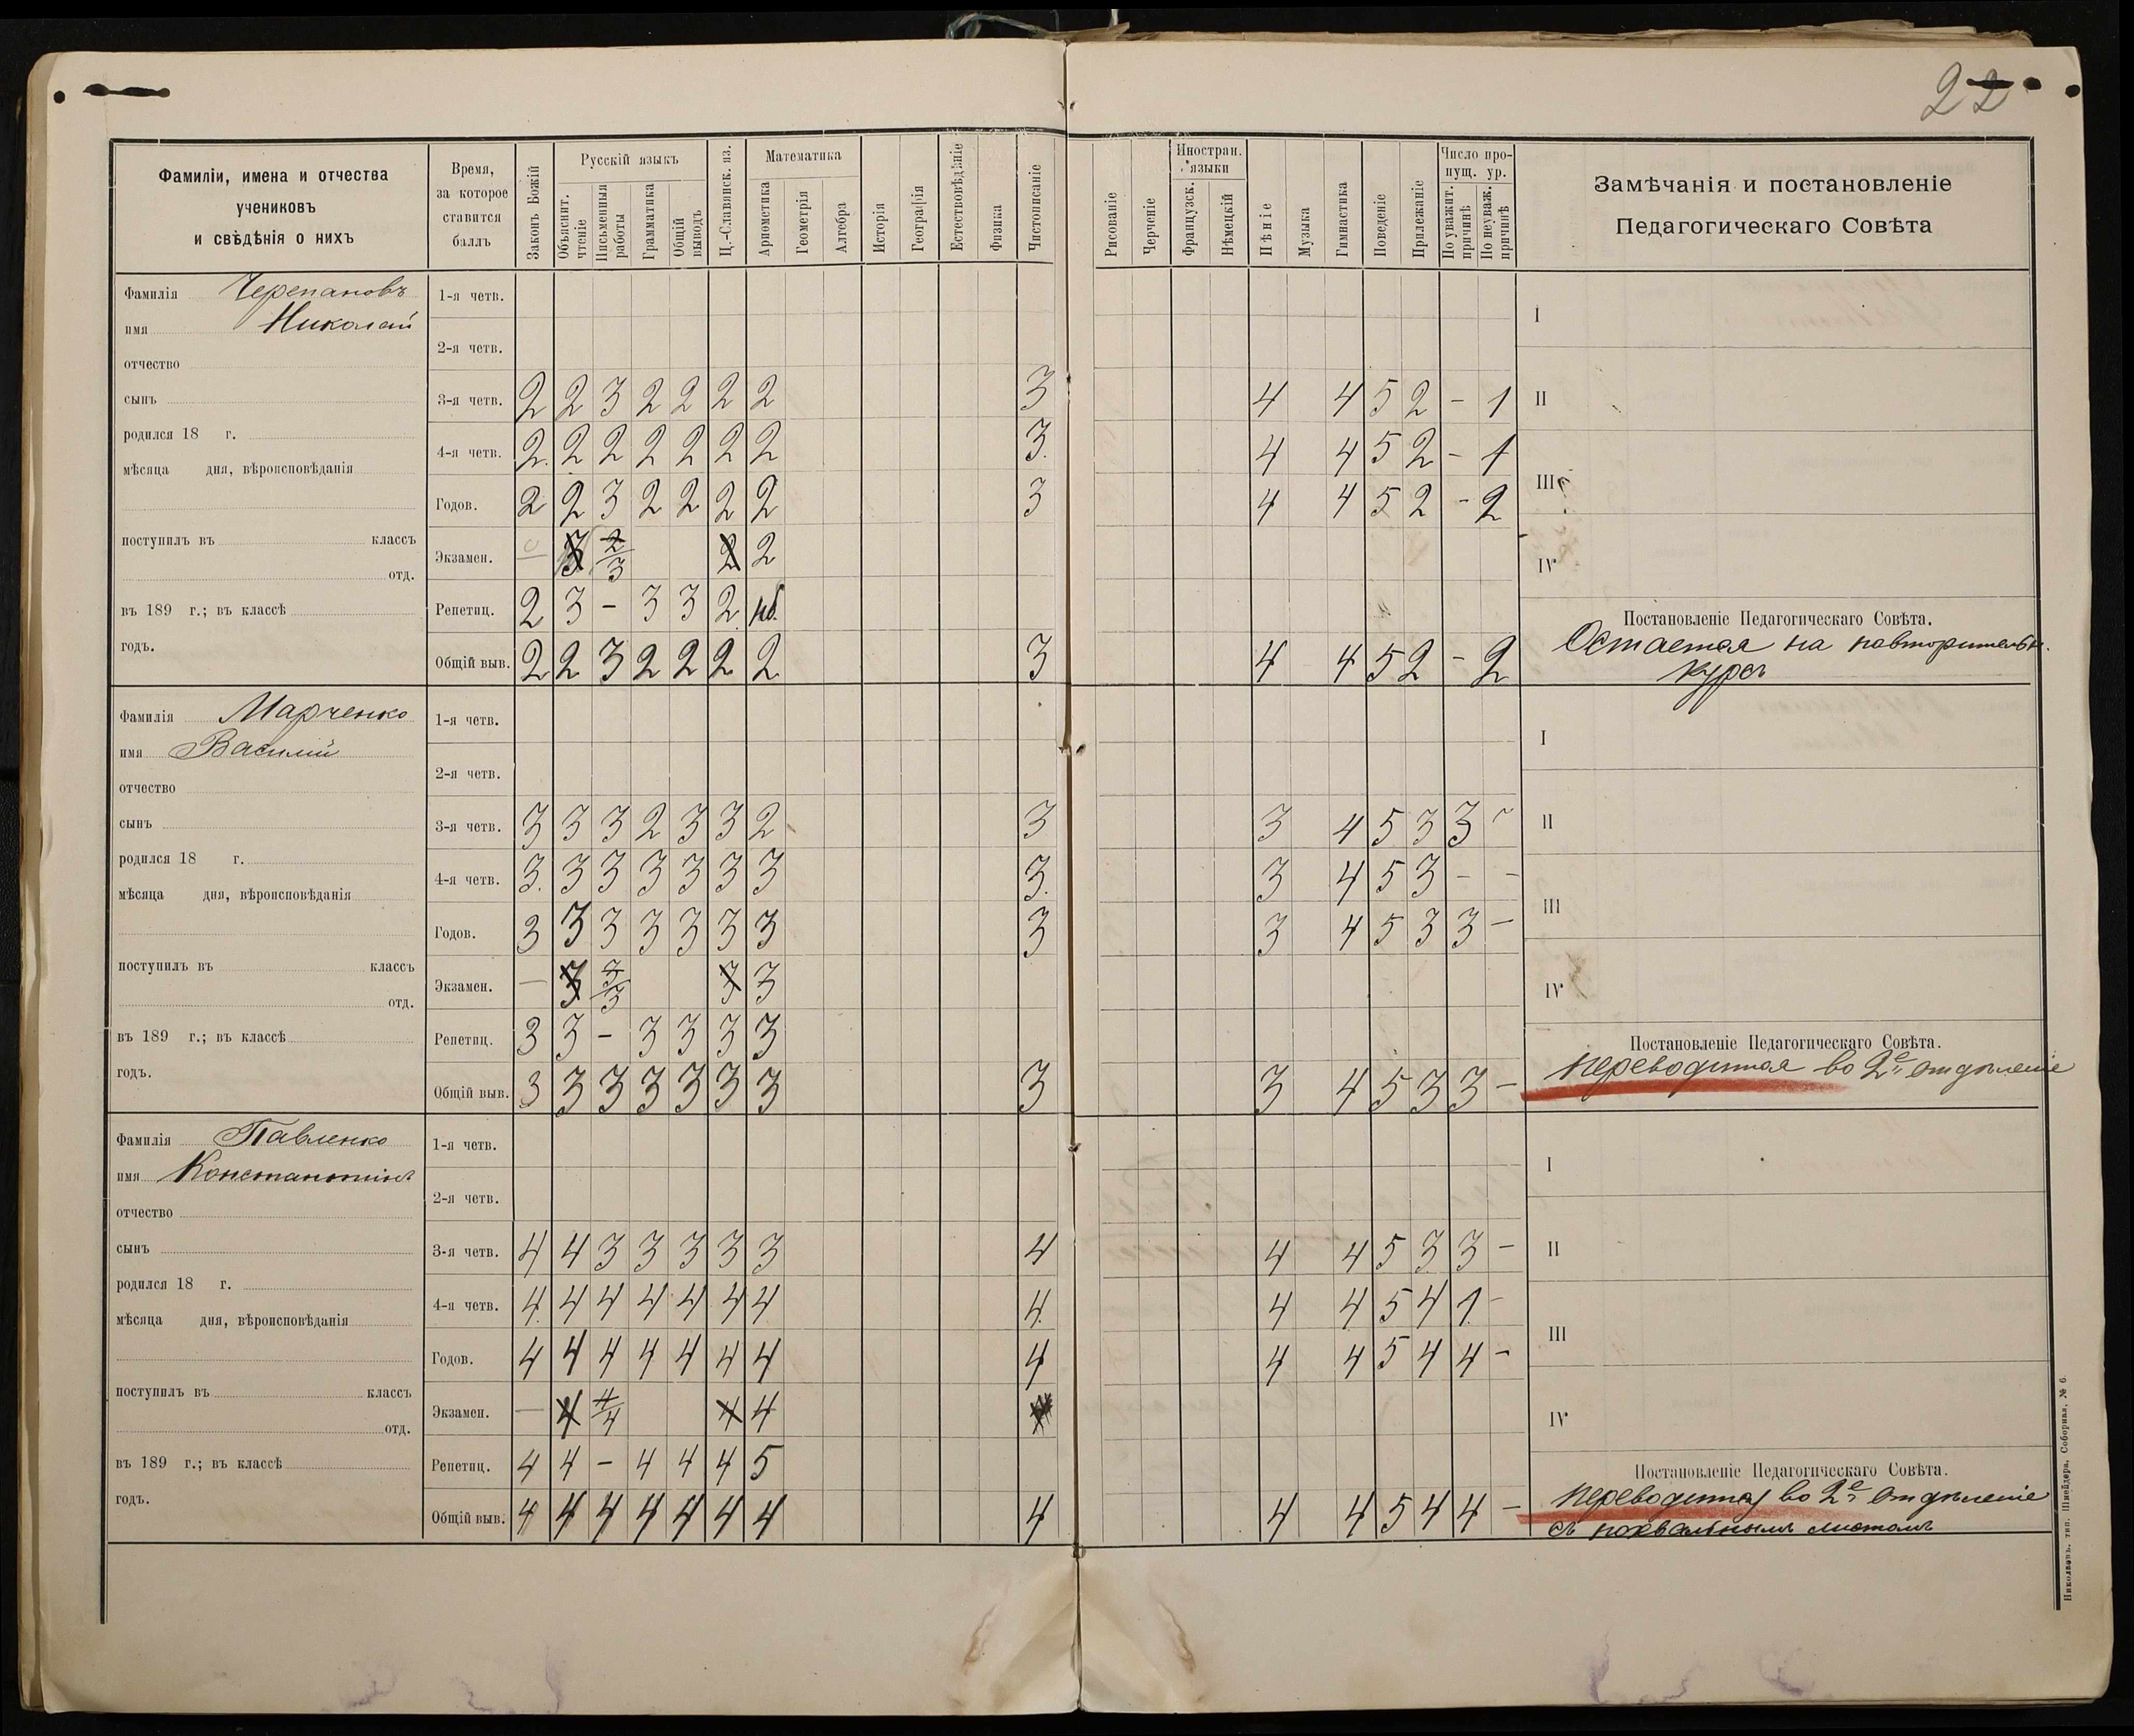 22
Фамиліи, имена и отчества
учениковъ
и свѣдѣнія о нихъ
Время,
за которое
ставится
баллъ
Законъ Божій
Русскій языкъ
Объяснит. чтеніе
Письменныя работы
Грамматика
Общій выводъ
Ц.-Славянск. яз.
Математика
Ариѳметика
Геометрія
Алгебра
Исторія
Географія
Естествовѣдѣніе
Физика
Чистописаніе
Рисованіе
Черченіе
Иностран. языки
Французск.
Нѣмецкій
Пѣніе
Музыка
Гимнастика
Поведеніе
Прилежаніе
Число про-
пущ. ур.
По уважит. причинѣ
По неуваж. причинѣ
Замѣчанія и постановленіе
Педагогическаго Совѣта
Фамилія Черепановъ
имя Николай
отчество
сынъ
родился 18 г.
мѣсяца дня, вѣроисповѣданія
поступилъ въ классъ
отд.
въ 189 г.; въ классѣ
годъ.
1-я четв.
2-я четв.
3-я четв. 2 2 3 2 2 2 2 3 4 4 5 2 - 1
4-я четв. 2. 2 2 2 2 2 2 3. 4 4 5 2 - 1
Годов. 2 2 3 2 2 2 2 3 4 4 5 2 - 2
Экзамен. — 3 2/3 2 2
Репетиц. 2 3 - 3 3 2 нб.
Общій выв. 2 2 3 2 2 2 2 3 4 4 5 2 - 2
I
II
III
IV
Постановленіе Педагогическаго Совѣта.
Остается на повторительн.
курсъ
Фамилія Марченко
имя Василій
отчество
сынъ
родился 18 г.
мѣсяца дня, вѣроисповѣданія
поступилъ въ классъ
отд.
въ 189 г.; въ классѣ
годъ.
1-я четв.
2-я четв.
3-я четв. 3 3 3 2 3 3 2 3 3 4 5 3 3 -
4-я четв. 3. 3 3 3 3 3 3 3. 3 4 5 3 - -
Годов. 3 3 3 3 3 3 3 3 3 4 5 3 3 -
Экзамен. — 3 3/3 3 3
Репетиц. 3 3 - 3 3 3 3
Общій выв. 3 3 3 3 3 3 3 3 3 4 5 3 3 -
I
II
III
IV
Постановленіе Педагогическаго Совѣта.
переводится во 2е отдѣленіе
Фамилія Павленко
имя Константинъ
отчество
сынъ
родился 18 г.
мѣсяца дня, вѣроисповѣданія
поступилъ въ классъ
отд.
въ 189 г.; въ классѣ
годъ.
1-я четв.
2-я четв.
3-я четв. 4 4 3 3 3 3 3 4 4 4 5 3 3 -
4-я четв. 4. 4 4 4 4 4 4 4. 4 4 5 4 1. -
Годов. 4 4 4 4 4 4 4 4 4 4 5 4 4 -
Экзамен. — 4 4/4 4 4
Репетиц. 4 4 - 4 4 4 5
Общій выв. 4 4 4 4 4 4 4 4 4 4 5 4 4 -
I
II
III
IV
Постановленіе Педагогическаго Совѣта.
переводится во 2е отдѣленіе
съ похвальнымъ листомъ
Николаевъ. тип. Шнейдера, Соборная, № 6.